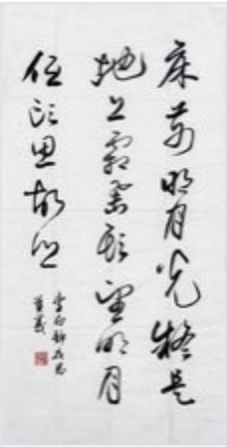 床前明月光疑是
地上霜舉頭望明月
低頭思故鄉
李白靜夜思